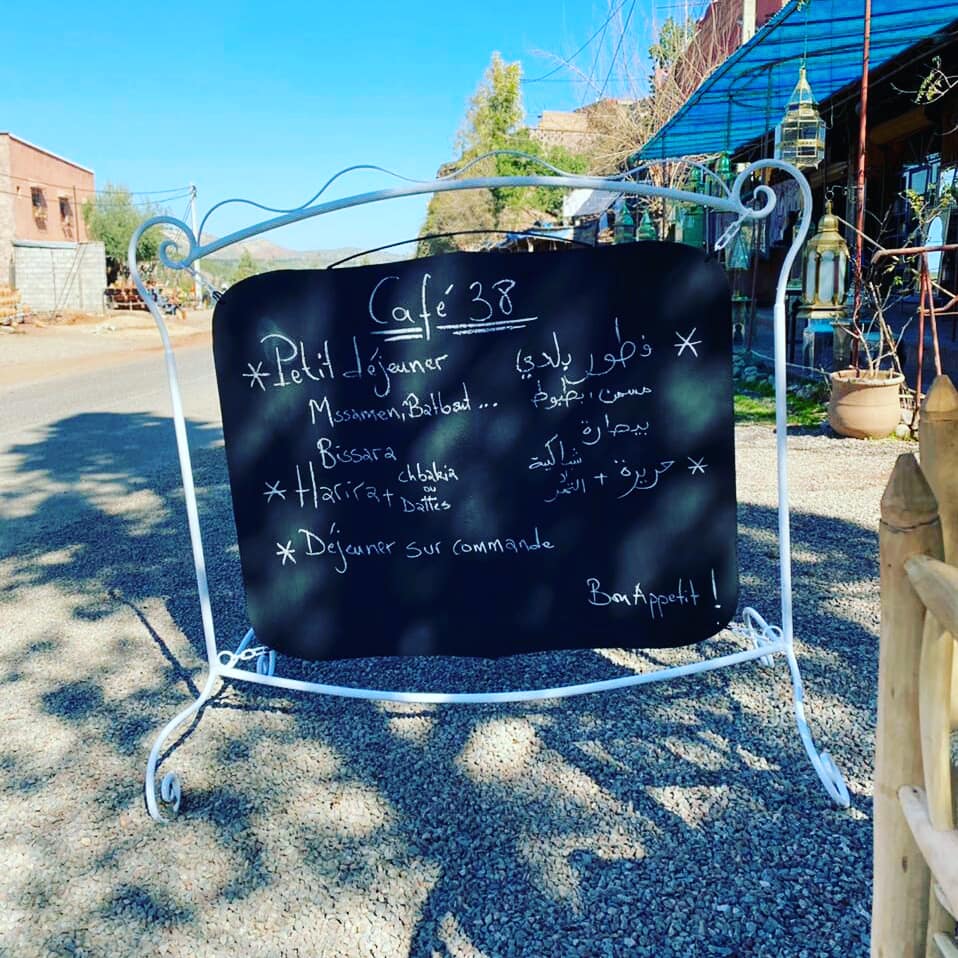 Café 38
* Petit déjeuner
فطور بلدي *
Mssamen, Batbout ...
مسمن، بطبوط
Bissara
بيصارة
* Harira + chbakia ou Dattes
حريرة + شباكية أو التمر *
* Déjeuner sur commande
Bon Appetit !